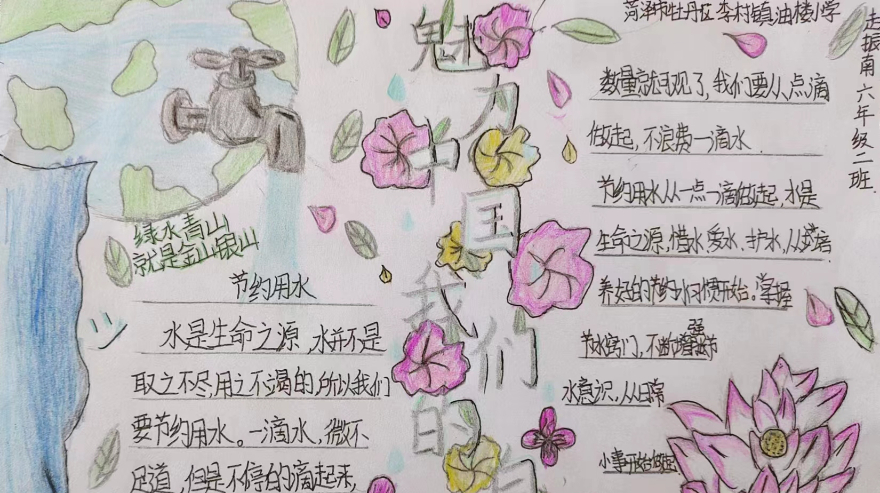 菏泽市牡丹区李村镇油楼小学
赵振南 六年级二班
魅力中国我们的
绿水青山
就是金山银山
节约用水
水是生命之源,水并不是
取之不尽,用之不竭的,所以我们
要节约用水。一滴水,微不
足道,但是不停的滴起来,
数量就可观了,我们要从点滴
做起,不浪费一滴水.
节约用水从一点一滴做起,水是
生命之源,惜水、爱水、护水,从培
养好的节约水习惯开始。掌握
节水窍门,不断增强节
水意识,从日常
小事开始做起